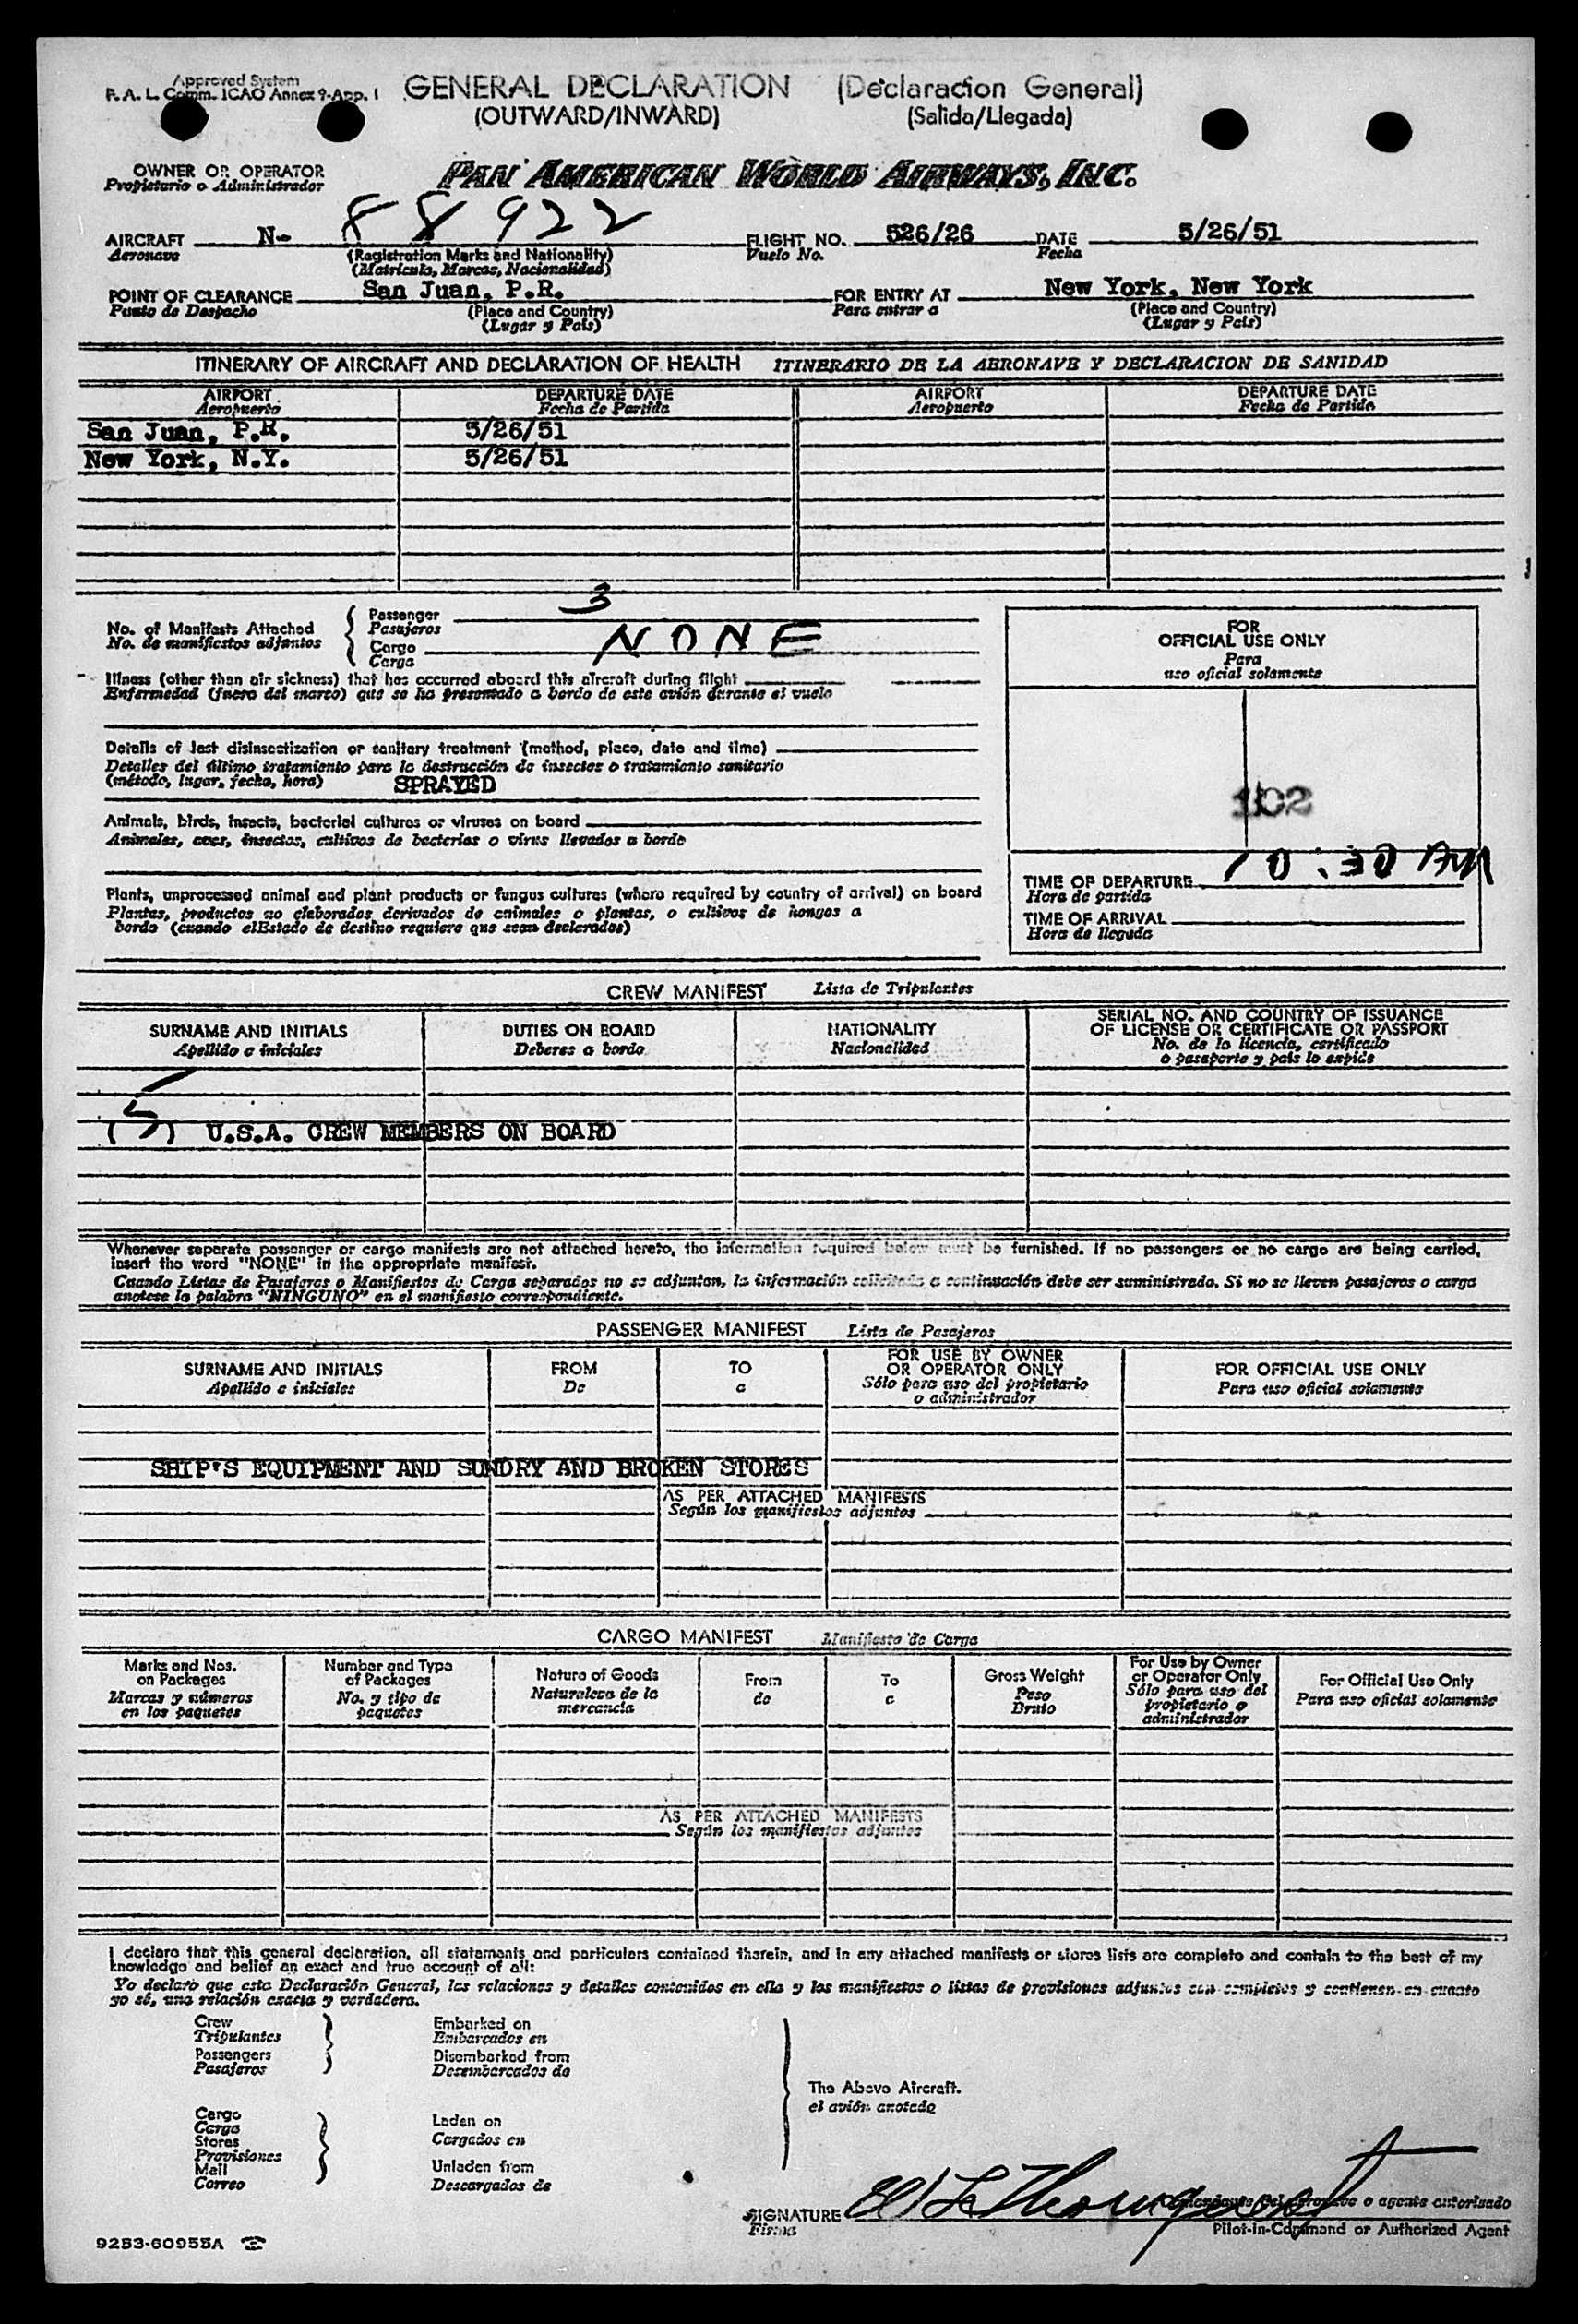 Approved System
F. A. L. Comm. ICAO Annex 9-App. I
GENERAL DECLARATION (Declaracion General)
(OUTWARD/INWARD) (Salida/Llegada)
OWNER OR OPERATOR
Propietario o Administrador
PAN AMERICAN WORLD AIRWAYS, INC.
AIRCRAFT N- 88922 FLIGHT NO. 526/26 DATE 5/26/51
Aeronave (Registration Marks and Nationality) Vuelo No. Fecha
(Matricula, Marcas, Nacionalidad)
POINT OF CLEARANCE San Juan, P.R. FOR ENTRY AT New York, New York
Punto de Despacho (Place and Country) Para entrar a (Place and Country)
(Lugar y País) (Lugar y País)
ITINERARY OF AIRCRAFT AND DECLARATION OF HEALTH ITINERARIO DE LA AERONAVE Y DECLARACION DE SANIDAD
AIRPORT DEPARTURE DATE AIRPORT DEPARTURE DATE
Aeropuerto Fecha de Partida Aeropuerto Fecha de Partida
San Juan, P.R. 5/26/51
New York, N.Y. 5/26/51
No. of Manifests Attached
No. de manifiestos adjuntos
Passenger 3
Pasajeros
Cargo NONE
Carga
Illness (other than air sickness) that has occurred aboard this aircraft during flight
Enfermedad (fuera del mareo) que se ha presentado a bordo de este avión durante el vuelo
Details of last disinsectization or sanitary treatment (method, place, date and time)
Detalles del último tratamiento para la destrucción de insectos o tratamiento sanitario
(método, lugar, fecha, hora) SPRAYED
Animals, birds, insects, bacterial cultures or viruses on board
Animales, aves, insectos, cultivos de bacterias o virus llevados a bordo
Plants, unprocessed animal and plant products or fungus cultures (where required by country of arrival) on board
Plantas, productos no elaborados derivados de animales o plantas, o cultivos de hongos a
bordo (cuando elEstado de destino requiere que sean declarados)
FOR
OFFICIAL USE ONLY
Para
uso oficial solamente
102
TIME OF DEPARTURE 10:30 AM
Hora de partida
TIME OF ARRIVAL
Hora de llegada
CREW MANIFEST Lista de Tripulantes
SURNAME AND INITIALS DUTIES ON BOARD NATIONALITY SERIAL NO. AND COUNTRY OF ISSUANCE
OF LICENSE OR CERTIFICATE OR PASSPORT
Apellido e iniciales Deberes a bordo Nacionalidad No. de la licencia, certificado
o pasaporte y país lo expide
(5) U.S.A. CREW MEMBERS ON BOARD
Whenever separate passenger or cargo manifests are not attached hereto, the information required below must be furnished. If no passengers or no cargo are being carried,
insert the word "NONE" in the appropriate manifest.
Cuando Listas de Pasajeros o Manifiestos de Carga separados no se adjuntan, la información solicitada a continuación debe ser suministrada. Si no se lleven pasajeros o carga
anotese la palabra "NINGUNO" en el manifiesto correspondiente.
PASSENGER MANIFEST Lista de Pasajeros
SURNAME AND INITIALS FROM TO FOR USE BY OWNER
OR OPERATOR ONLY FOR OFFICIAL USE ONLY
Apellido e iniciales De a Sólo para uso del propietario
o administrador Para uso oficial solamente
SHIP'S EQUIPMENT AND SUNDRY AND BROKEN STORES
AS PER ATTACHED MANIFESTS
Según los manifiestos adjuntos
CARGO MANIFEST Manifiesto de Carga
Marks and Nos.
on Packages
Marcas y números
en los paquetes
Number and Type
of Packages
No. y tipo de
paquetes
Nature of Goods
Naturaleza de la
mercancía
From
de
To
a
Gross Weight
Peso
Bruto
For Use by Owner
or Operator Only
Sólo para uso del
propietario o
administrador
For Official Use Only
Para uso oficial solamente
AS PER ATTACHED MANIFESTS
Según los manifiestos adjuntos
I declare that this general declaration, all statements and particulars contained therein, and in any attached manifests or stores lists are complete and contain to the best of my
knowledge and belief an exact and true account of all:
Yo declaro que esta Declaración General, las relaciones y detalles contenidos en ella y los manifiestos o listas de provisiones adjuntos son completos y contienen en cuanto
yo sé, una relación exacta y verdadera.
Crew
Tripulantes
Passengers
Pasajeros
Embarked on
Embarcados en
Disembarked from
Desembarcados de
Cargo
Carga
Stores
Provisiones
Mail
Correo
Laden on
Cargados en
Unladen from
Descargados de
The Above Aircraft.
el avión anotado
SIGNATURE
Firma
Comandante del aeronave o agente autorisado
Pilot-in-Command or Authorized Agent
9253-60955A